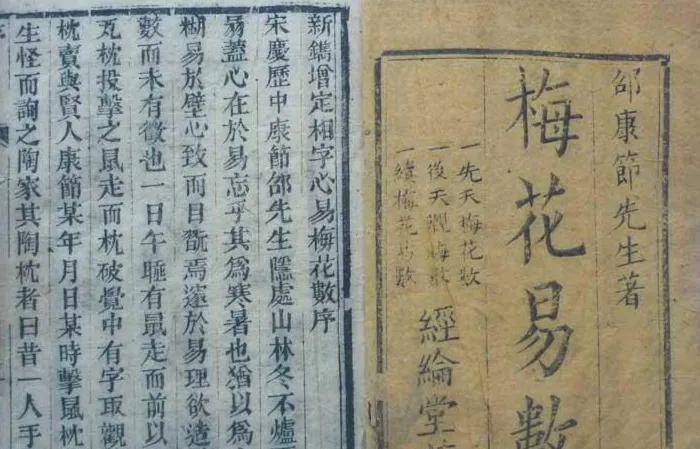 邵康節先生著
梅花易數
一先天梅花數
一後天觀梅數
一續梅花易數
經綸堂
新鐫增定相字心易梅花數序
宋慶歷中康節邵先生隱處山林冬不爐
易蓋心在於易忘乎其爲寒暑也猶以爲
糊易於壁心致而目翫焉邃於易理欲造
數而未有徵也一日午睡有鼠走而前以
瓦枕投擊之鼠走而枕破覺中有字取觀
枕賣與賢人康節某年月日某時擊鼠枕
生怪而詢之陶家其陶枕者曰昔一人手